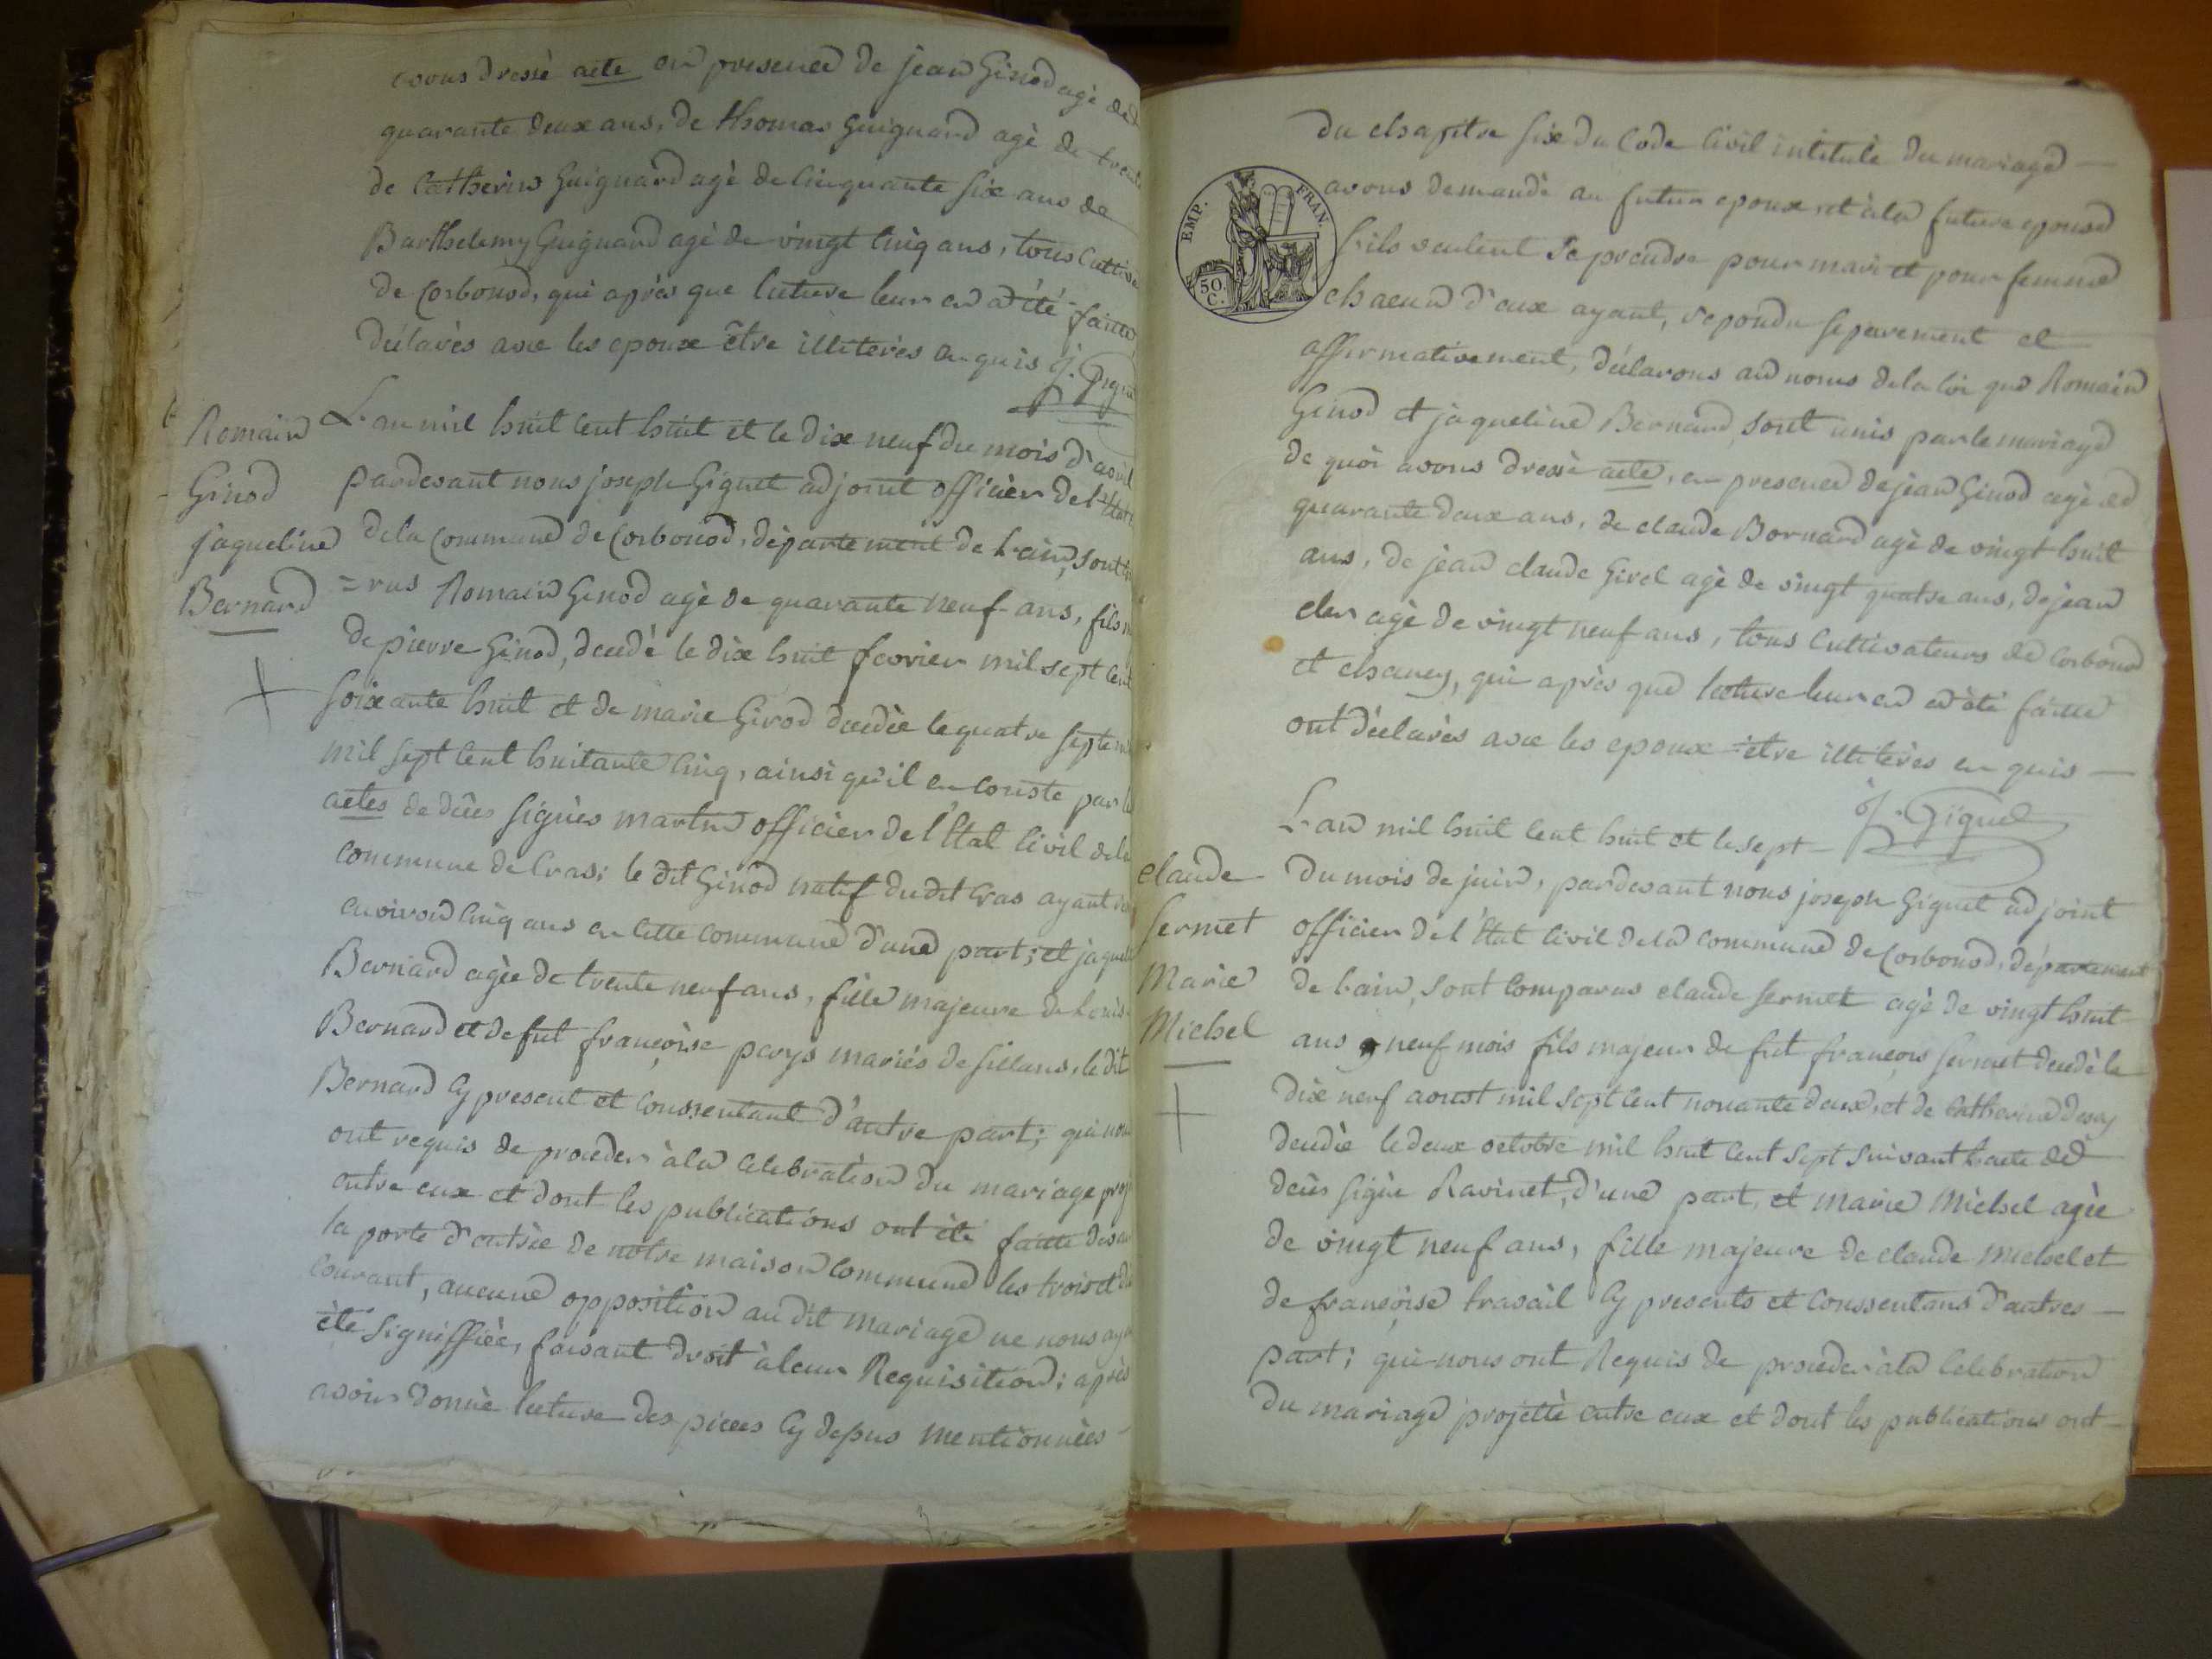 avons dressé acte en presence de jean Ginod agé de
quarante deux ans, de thomas Guignard agé de trente
de Catherin Guignard agé de Cinquante six ans de
Barthelemy Guignard agé de vingt Cinq ans, tous Cultiva
de Corbonod, qui après que lecture leur en a été faitte
déclarés avec les epoux être illiterés enquis J. Giguet
Romain
Ginod
jaqueline
Bernard
L'an mil huit Cent huit et le dix neuf du mois d'avril
pardevant nous joseph Giguet adjoint officier de l'Etat
de la Commune de Corbonod, département de L'ain, sont
=rus Romain Ginod agé de quarante neuf ans, fils
de pierre Ginod, decedé le dix huit fevrier mil sept Cent
soixante huit et de marie Girod decedée le quatre septem
mil sept Cent huitante Cinq, ainsi qu'il en Conste par
actes de décès signés martin officier de l'Etat Civil de la
Commune de Cras; le dit Ginod natif dudit Cras ayant
environ Cinq ans en Cette Commune d'une part; et jaquel
Bernard agée de trente neuf ans, fille majeure de Louis
Bernard et de fut françoise perys mariés de sillans, le dit
Bernard Cy present et Conssentant d'autre part; qui nou
ont requis de proceder à la Celebration du mariage proj
entre eux et dont les publications ont été faitte deva
la porte d'entrée de notre maison Commune les trois et
Courant, aucune opposition au dit mariage ne nous ay
été signiffiée, faisant droit à leur Requisition; après
avoir donné lecture des pieces Cy depus mentionnées
du chapitre six du Code Civil intitulé du mariage
EMP. FRAN.
50. C.
avons demandé au futur epoux et à la future epouse
s'ils veulent se prendre pour mari et pour femme
chacun d'eux ayant, repondu seperement et
affirmativement, déclarons au noms de la loi que Romain
Ginod et jaqueline Bernard, sont unis par le mariage
de quoi avons dressé acte, en presence de jean Ginod agé de
quarante deux ans, de claude Bornard agé de vingt huit
ans, de jean claude Girel agé de vingt quatre ans, de jean
cler agé de vingt neuf ans, tous Cultivateurs de Corbonod
et chanay, qui après que lecture leur en a été faitte
ont déclarés avec les epoux être illiterés en quis
J. Giguet
claude
Sermet
Marie
Michel
L'an mil huit Cent huit et le sept
du mois de juin, pardevant nous joseph Giguet adjoint
officier de l'Etat Civil de la Commune de Corbonod, département
de L'ain, sont Comparus claude Sermet agé de vingt huit
ans neuf mois fils majeur de fut françois Sermet decedé le
dix neuf aoust mil sept Cent nonante deux, et de Catherine
decedée le deux octobre mil huit Cent sept suivant L'acte de
decès signée Ravinet, d'une part, et marie Michel agée
de vingt neuf ans, fille majeure de claude Michel et
de françoise travail Cy presents et Conssentans d'autres
part; qui nous ont Requis de proceder à la Celebration
du mariage projetté entre eux et dont les publications ont